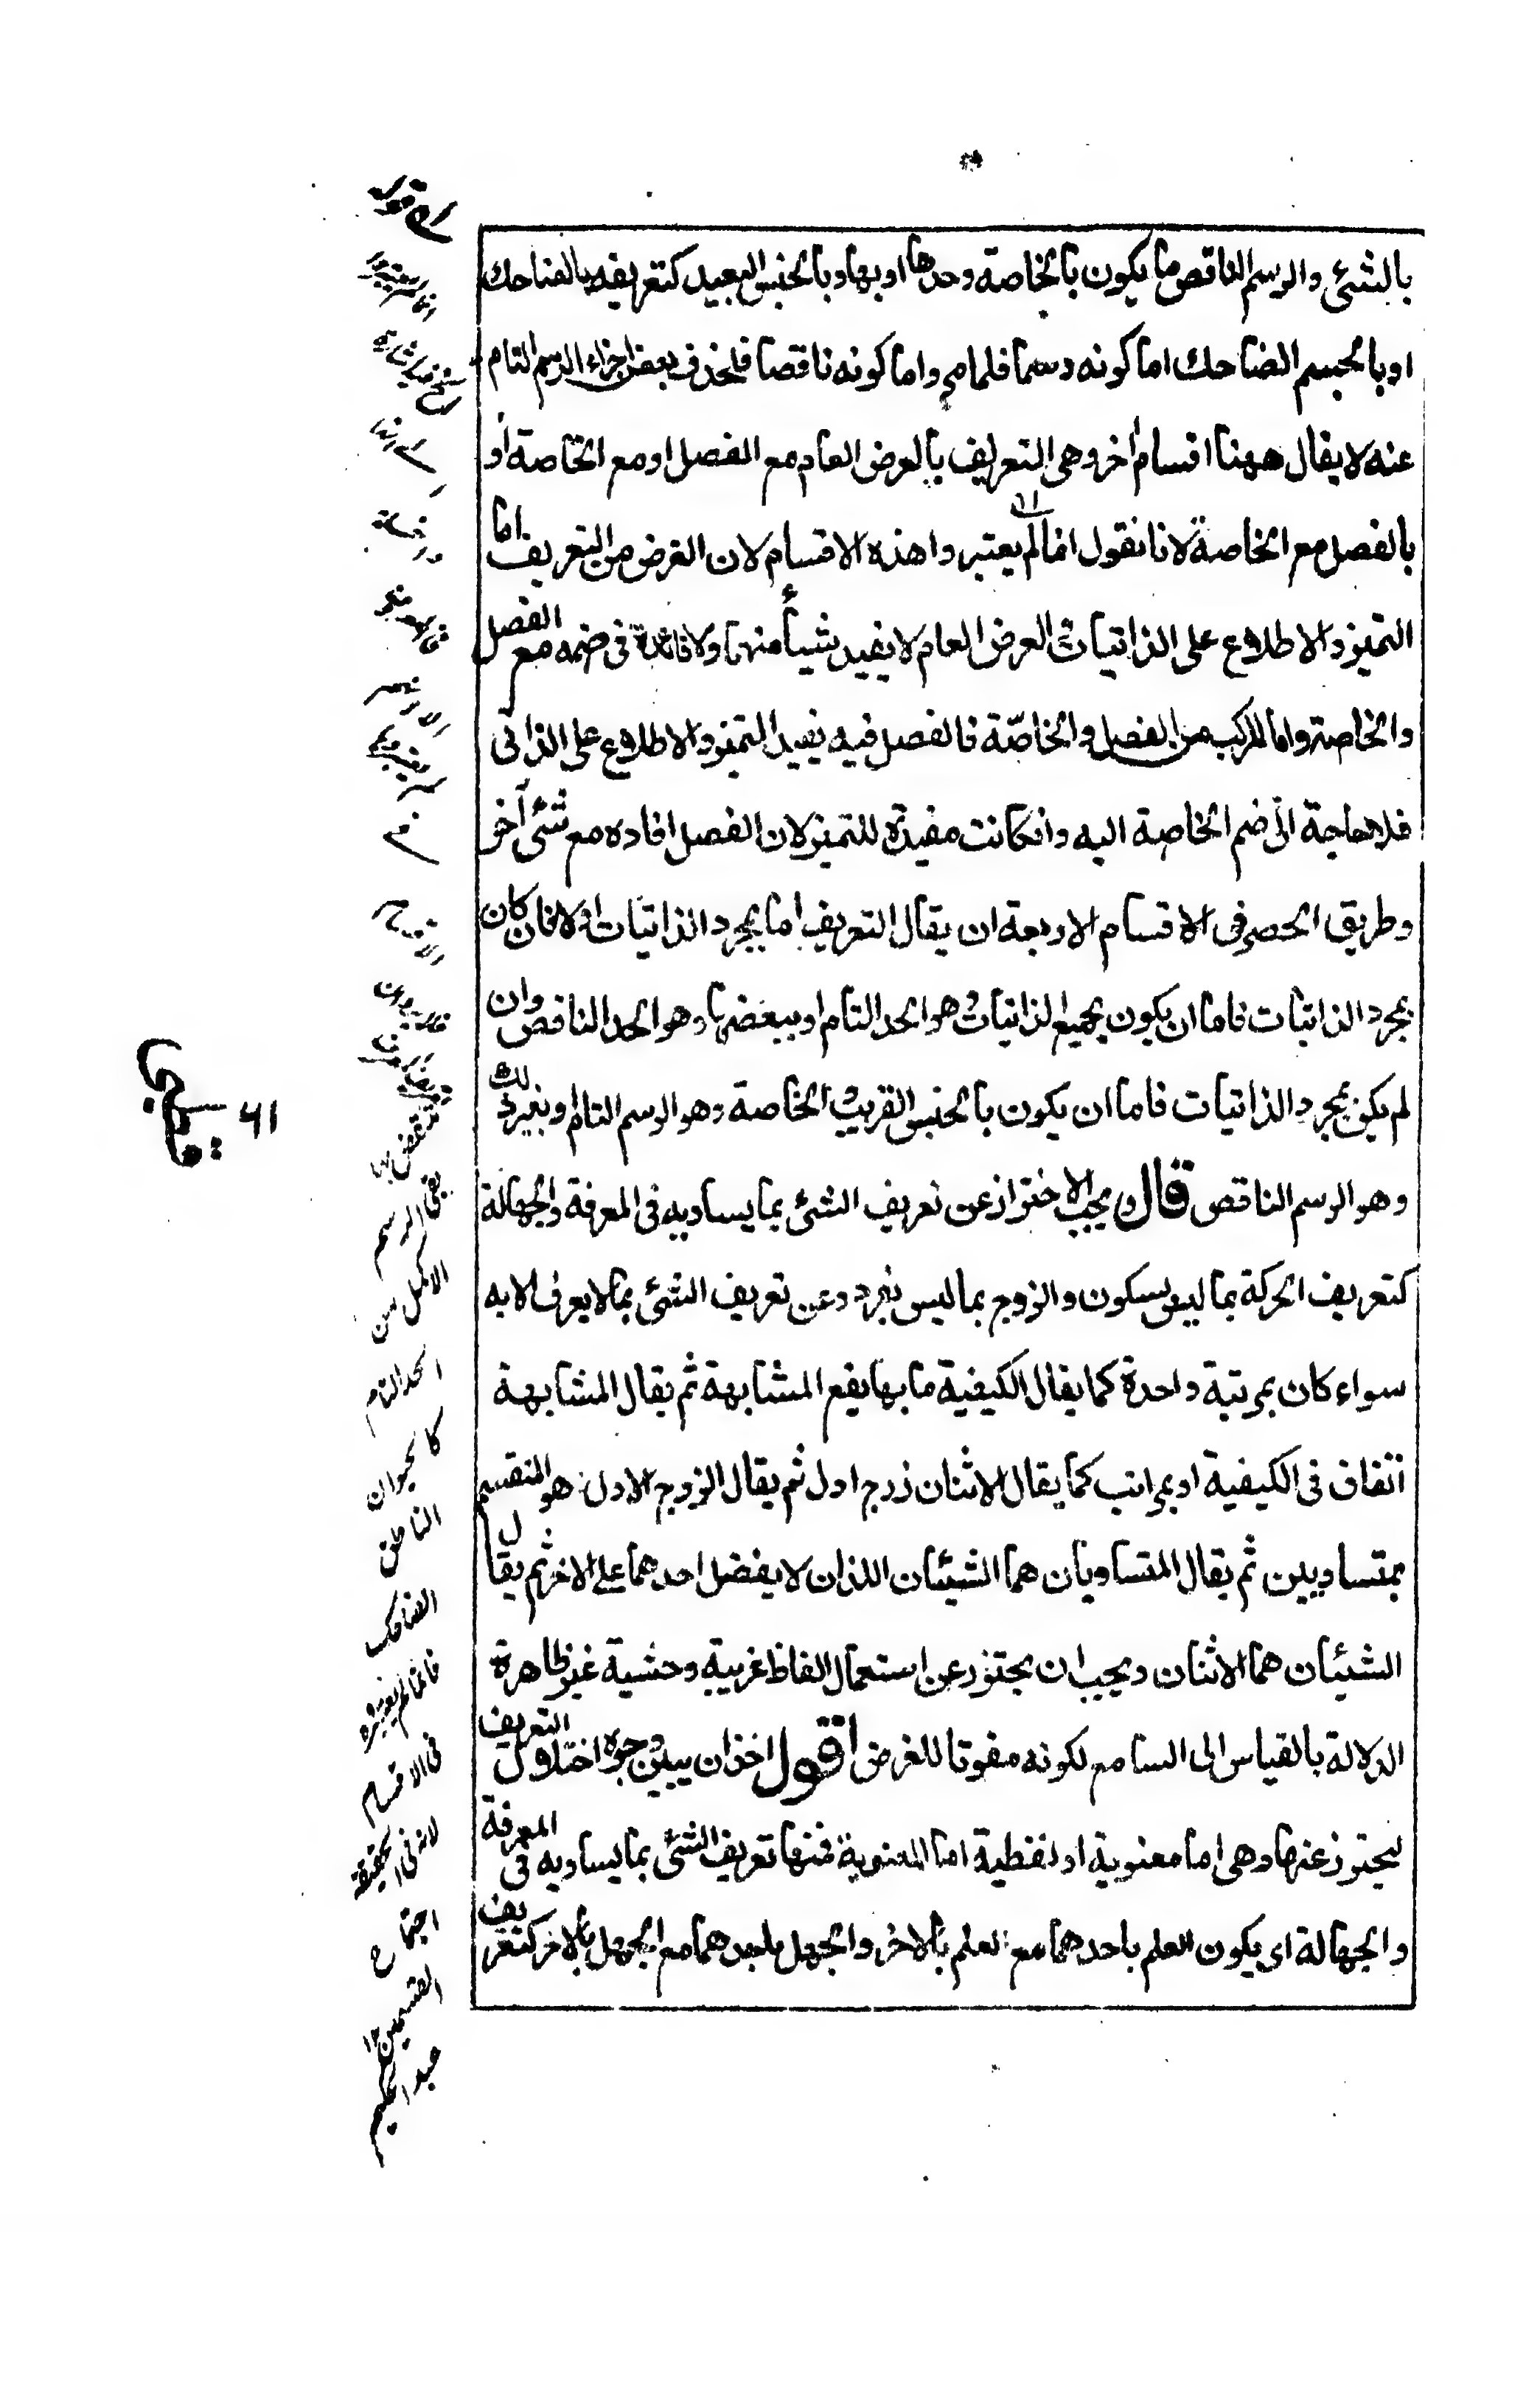 بالشئ والرسم الناقص ما يكون بالخاصة وحدها او بها وبالجنس البعيد كتعريفه بالضاحك
او بالجسم الضاحك اما كونه رسما فلما مر واما كونه ناقصا فلحذف بعض اجزاء الرسم التام
عنه لا يقال ههنا اقسام أخر وهى التعريف بالعرض العام مع الفصل او مع الخاصة أو
بالفصل مع الخاصة لانا نقول انما لم يعتبروا هذه الاقسام لان الغرض من التعريف اما
التميز والاطلاع على الذاتيات والعرض العام لا يفيد شيأ منهما ولا فائدة فى ضمه مع الفصل
والخاصة واما المركب من الفصل والخاصّة فالفصل فيه يفيد التميز والاطلاع على الذاتى
فلا حاجة الى ضم الخاصة اليه وانكانت مفيدة للتميز لان الفصل افاده مع شئ آخر
وطريق الحصر فى الاقسام الاربعة ان يقال التعريف اما بمجرد الذاتيات او لا فان كان
بمجرد الذاتيات فاما ان يكون بجميع الذاتيات وهو الحد التام او ببعضها وهو الحد الناقص وان
لم يكن بمجرد الذاتيات فاما ان يكون بالجنس القريب والخاصة وهو الرسم التام او بغير ذلك
وهو الرسم الناقص قال ويجب الاحتراز عن تعريف الشئ بما يساويه فى المعرفة والجهالة
كتعريف الحركة بما ليس بسكون والزوج بما ليس بفرد وعن تعريف الشئ بما لا يعرف الا به
سواء كان بمرتبة واحدة كما يقال الكيفية ما بها يقع المشابهة ثم يقال المشابهة
اتفاق فى الكيفية او بمراتب كما يقال الاثنان زوج اول ثم يقال الزوج الاول هو المنقسم
بمتساويين ثم يقال المتساويان هما الشيئان اللذان لا يفضل احدهما على الاخر ثم يقال
الشيئان هما الاثنان ويجب ان يحترز عن استعمال الفاظ غريبة وحشية غير ظاهرة
الدلالة بالقياس الى السامع لكونه مفوتا للغرض اقول اخذ ان يبين وجوه اختلال التعريف
ليحترز عنها وهى اما معنوية او لفظية اما المعنوية فمنها تعريف الشئ بما يساويه فى المعرفة
والجهالة اى يكون العلم باحدهما مع العلم بالاخر والجهل باحدهما مع الجهل بالاخر كتعريف
قوله
بقى الرسم
الاكمل من
الحد التام
كالحيوان
الناطق
الضاحك
فانما لم يعتبروه
فى الاقسام
لانه فى الحقيقة
اجتماع
القسمين ١٢
عبد الحكيم
٦١